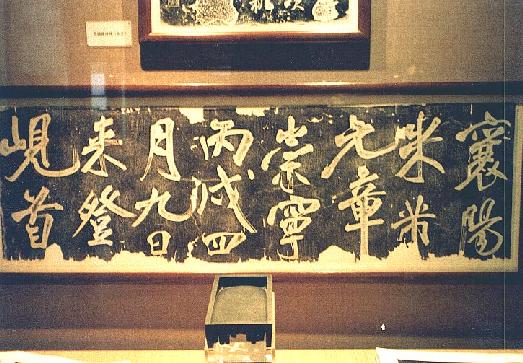 襄陽
米芾
元章
崇寧
丙戌四
月九日
来登
峴首